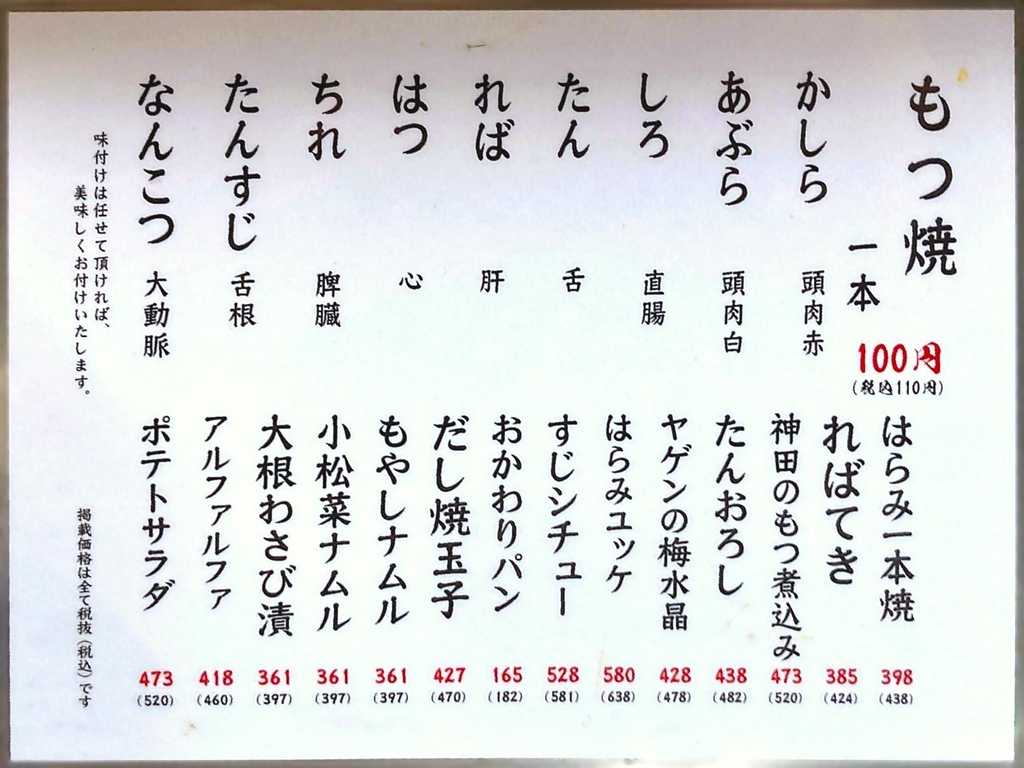 もつ焼
一本
100円
(税込110円)
かしら 頭肉赤
あぶら 頭肉白
しろ 直腸
たん 舌
れば 肝
はつ 心
ちれ 脾臓
たんすじ 舌根
なんこつ 大動脈
味付けは任せて頂ければ、
美味しくお付けいたします。
はらみ一本焼 398 (438)
ればてき 385 (424)
神田のもつ煮込み 473 (520)
たんおろし 438 (482)
ヤゲンの梅水晶 428 (478)
はらみユッケ 580 (638)
すじシチュー 528 (581)
おかわりパン 165 (182)
だし焼玉子 427 (470)
もやしナムル 361 (397)
小松菜ナムル 361 (397)
大根わさび漬 361 (397)
アルファルファ 418 (460)
ポテトサラダ 473 (520)
掲載価格は全て税抜(税込)です